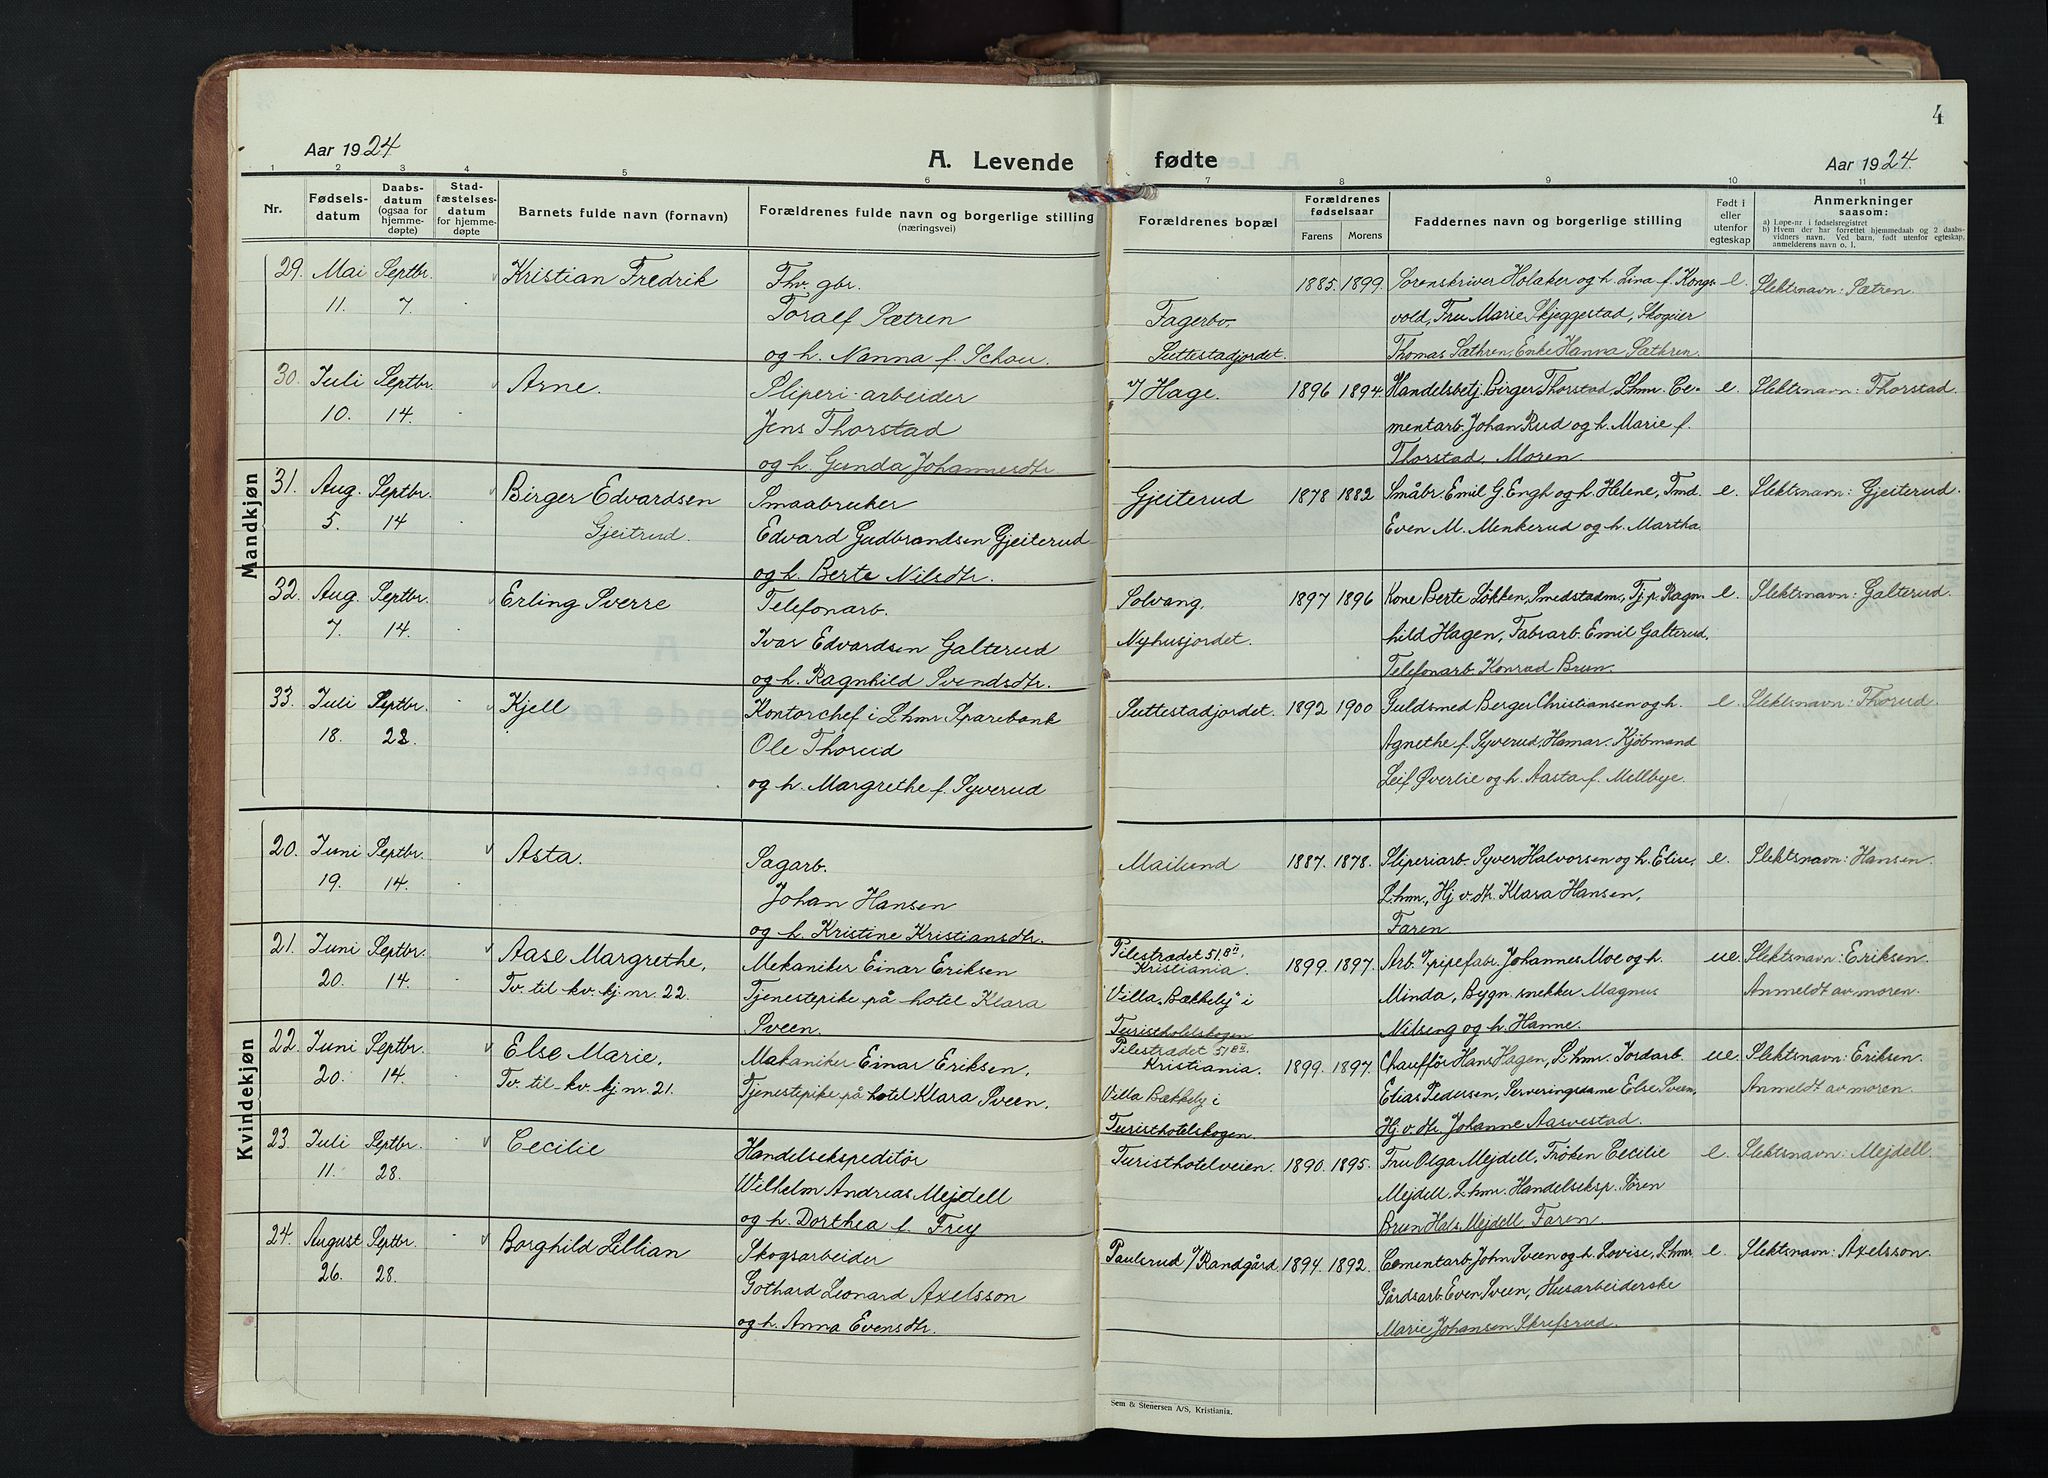 4
Aar 1924
A. Levende fødte
Aar 1924.
1 2 3 4 5 6 7 8 9 10 11
Nr.
Fødsels-
datum
Daabs-
datum
(ogsaa for
hjemme-
døpte)
Stad-
fæstelses-
datum
for hjemme-
døpte
Barnets fulde navn (fornavn)
Forældrenes fulde navn og borgerlige stilling
(næringsvei)
Forældrenes bopæl
Forældrenes
fødselsaar
Farens Morens
Faddernes navn og borgerlige stilling
Født i
eller
utenfor
egteskap
Anmerkninger
saasom:
a) Løpe-nr. i fødselsregistret
b) Hvem der har forrettet hjemmedaab og 2 daabs-
vidners navn. Ved barn, født utenfor egteskap,
anmelderens navn o. l.
Mandkjøn
29. Mai Septbr. Kristian Fredrik
11. 7.
Thv. gbr.
Toralf Sætren
og h. Nanna f. Schou.
Fagerbo,
Suttestadjordet.
1885. 1899.
Sorenskriver Holaker og h. Lina f. Kongs-
vold, Fru Marie Skjeggestad, Skogeier
Thomas Sæthren, Enke Hanna Sæthren.
e. Slektsnavn: Sætren.
30. Juli Septbr. Arne.
10. 14.
Sliperi-arbeider
Jens Thorstad
og h. Gunda Johannesdtr.
v/ Hage. 1896 1894.
Handelsbetj. Birger Thorstad, Lhm. Ce-
mentarb. Johan Rud og h. Marie f.
Thorstad, Moren.
e. Slektsnavn: Thorstad.
31. Aug. Septbr. Birger Edvardsen
5. 14 Gjeitrud.
Smaabruker
Edvard Gudbrandsen Gjeiterud
og h. Berte Nilsdtr.
Gjeiterud 1878 1882
Småbr. Emil G. Engh og h. Helene, Tmd.
Even M. Menkerud og h. Martha
e. Slektsnavn: Gjeiterud.
32. Aug. Septbr. Erling Sverre
7. 14.
Telefonarb.
Ivar Edvardsen Galterud
og h. Ragnhild Svendsdtr.
Solvang,
Nyhusjordet.
1897 1896
Kone Berte Løkken, Smedstadm., Tj.p. Ragn-
hild Hagen, Fabrarb. Emil Galterud,
Telefonarb. Konrad Brun.
e. Slektsnavn: Galterud.
33. Juli Septbr. Kjell
18. 28.
Kontorchef i Lhmr Sparebank
Ole Thorud
og h. Margrethe f. Syverud
Suttestadjordet. 1892 1900
Guldsmed Berger Christiansen og h.
Agnethe f. Syverud, Hamar. Kjøbmand
Leif Øverlie og h. Aasta f. Mellbye.
e. Slektsnavn: Thorud.
Kvindekjøn
20. Juni Septbr. Asta.
19. 14.
Sagarb.
Johan Hansen
og h. Kristine Kristiansdtr.
Mailund 1887. 1878.
Sliperiarb. Syver Halvorsen og h. Elise,
Lhm., Hj. v. dtr. Klara Hansen,
Faren.
e. Slektsnavn: Hansen.
21. Juni Septbr. Aase Margrethe,
20. 14. Tv. til kv. kj. nr. 22.
Mekaniker Einar Eriksen
Tjenestepike på hotel Klara
Sveen.
Pilestrædet 51 B II,
Kristiania.
Villa "Bækkely" i
Turisthotelskogen
1899. 1897.
Arb. v/ pipefabr. Johannes Moe og h.
Minda, Bygn. snekker Magnus
Nilseng og h. Hanne.
ue. Slektsnavn: Eriksen
Anmeldt av moren.
22. Juni Septbr. Else Marie,
20. 14. Tv. til kv. kj nr. 21.
Mekaniker Einar Eriksen,
Tjenestepike på hotel Klara Sveen.
Pilestrædet 51 B II.
Kristiania.
Villa Bækkely i
Turisthotelskogen.
1899. 1897.
Chauffør Hans Hagen, Lhm. Jordarb.
Elias Pedersen, Serveringsdame Else Sveen,
Hj. v. dtr. Johanne Aasvestad.
ue. Slektsnavn: Eriksen.
Anmeldt av moren.
23. Juli Septbr. Cecilie
11. 28.
Handelsekspeditør
Wilhelm Andreas Mejdell
og h. Dorthea f. Frey
Turisthotelveien. 1890. 1895.
Fru Olga Mejdell, Frøken Cecilie
Mejdell, Lhmr. Handelseksp. Søren
Brun Hals Mejdell, Faren.
e. Slektsnavn: Mejdell.
24. August Septbr. Borghild Lillian
26. 28.
Skogsarbeider
Gothard Leonard Axelsson
og h. Anna Evensdtr.
Paulsrud v/ Randgård 1894. 1892.
Cementarb. John Sveen og h. Lovise, Lhmr
Gårdsarb. Even Sveen, Husarbeiderske
Marie Johansen Skrefsrud.
e. Slektsnavn: Axelsson.
Sem & Stenersen A/S, Kristiania.